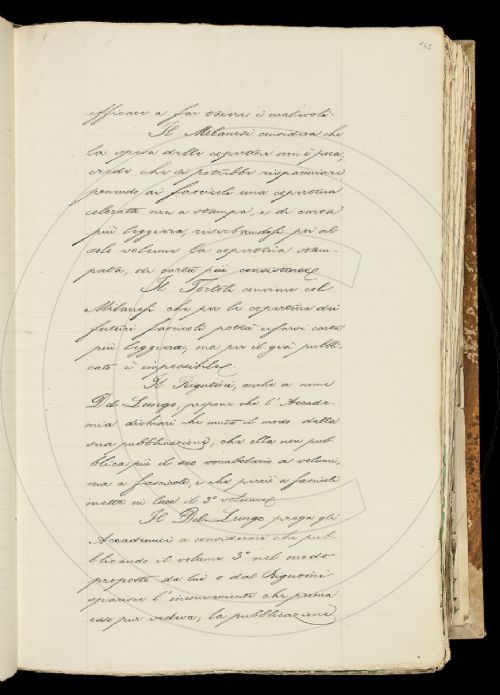 232
efficace a far tacere i malevoli.
Il Milanesi considera che
la spesa delle copertine non è poca,
crede che si potrebbe risparmiare
ponendo ai fascicoli una copertina
colorata non a stampa, e di carta
più leggiera, riserbandosi poi al
solo volume la copertina stam-
pata, di carta più consistente.
Il Tortoli conviene col
Milanesi che per la copertina dei
futuri fascicoli potrà usarsi carta
più leggiera, ma per il già pubbli-
cato è impossibile.
Il Rigutini, anche a nome
Del Lungo, propone che l'Accade-
mia dichiari che muta il modo della
sua pubblicazione, che ella non pub-
blica più il suo vocabolario a volumi,
ma a fascicoli, e che perciò a fascicoli
metta in luce il 3° volume.
Il Del-Lungo prega gli
Accademici a considerare che pub-
blicando il volume 3° nel modo
proposto da lui e dal Rigutini
sparisce l'inconveniente che prima
esso pur vedeva, la pubblicazione